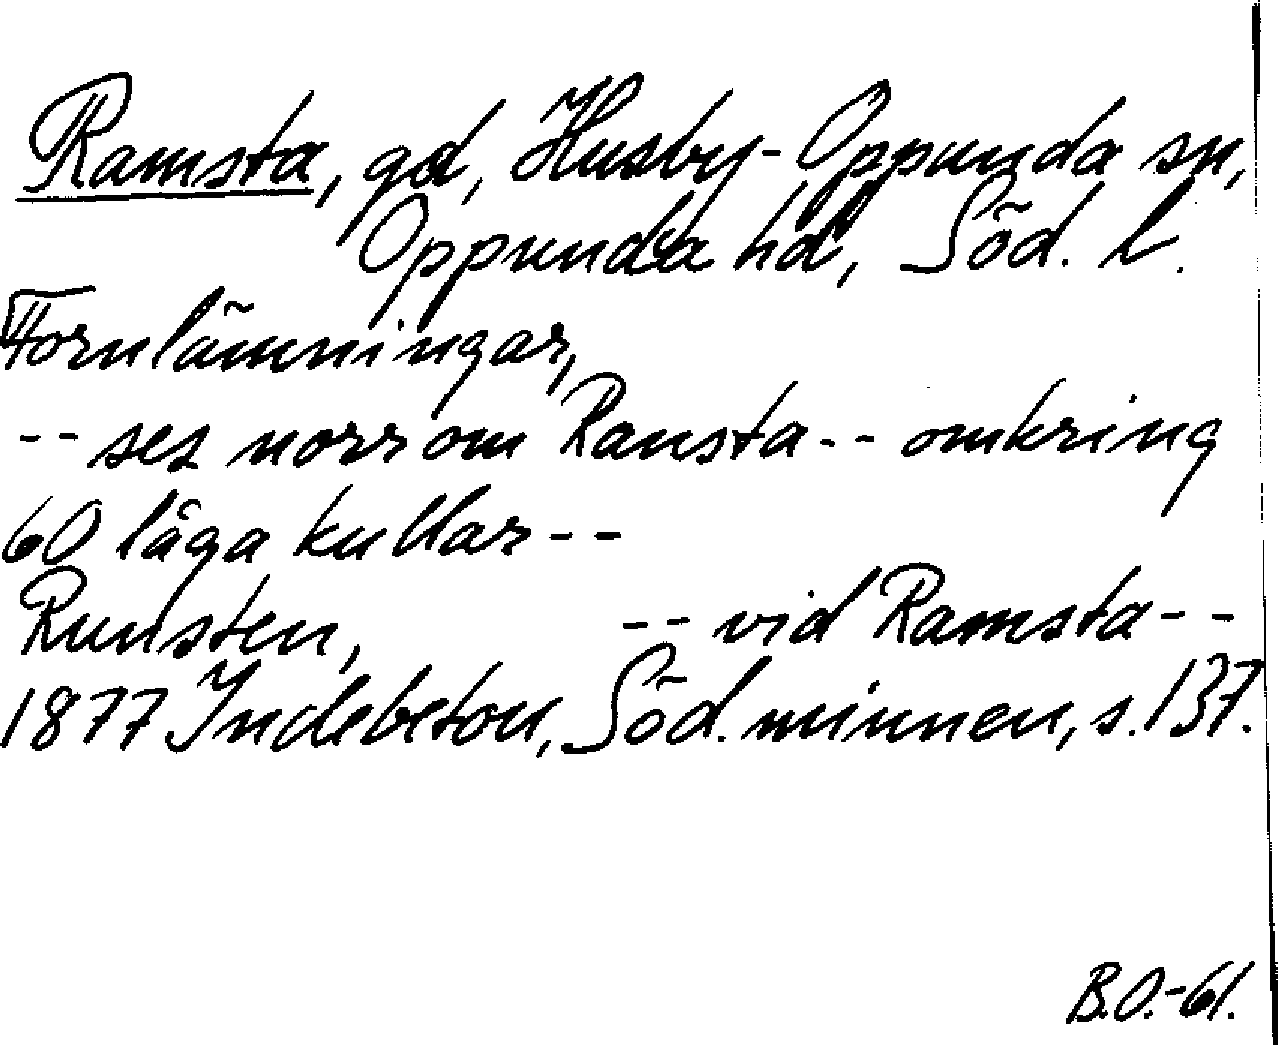 Ramsta, gd, Husby-Oppunda sn,
Oppunda hd, Söd. l.
Fornlämningar,
-- ses norr om Ramsta -- omkring
60 låga kullar --
Runsten, -- vid Ramsta --
1877 Indebetou, Söd. minnen, s. 137.
B.O.-61.